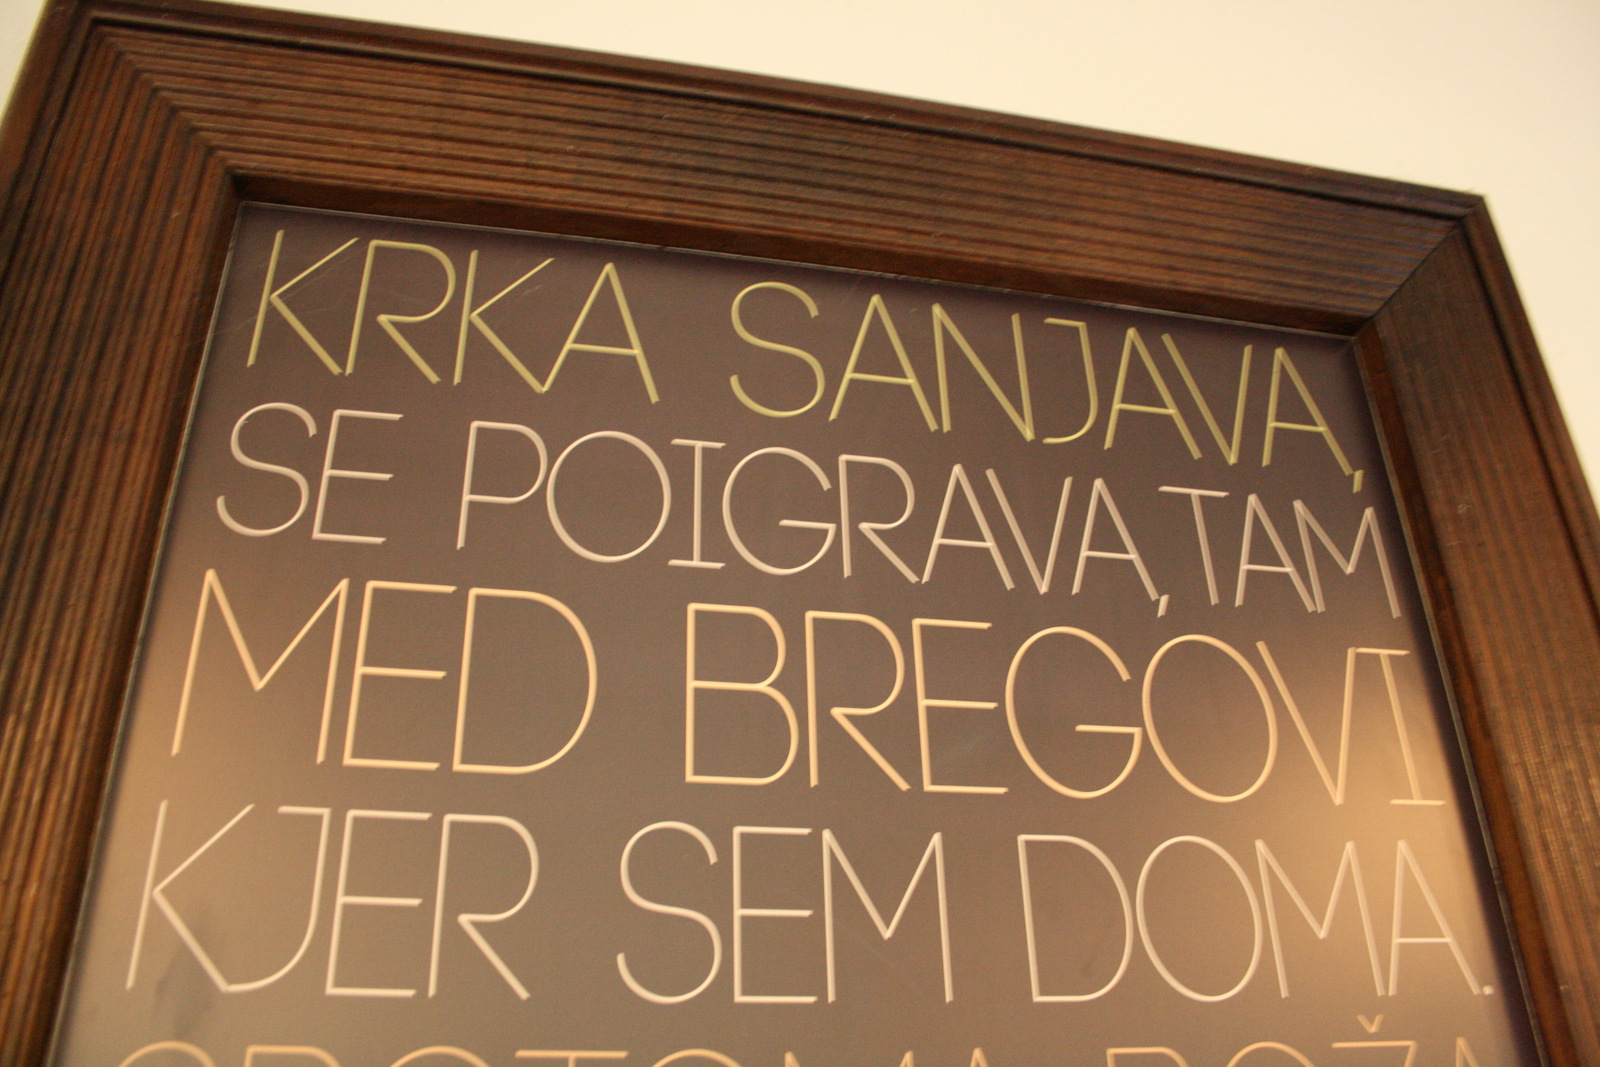 KRKA SANJAVA,
SE POIGRAVA, TAM
MED BREGOVI
KJER SEM DOMA.